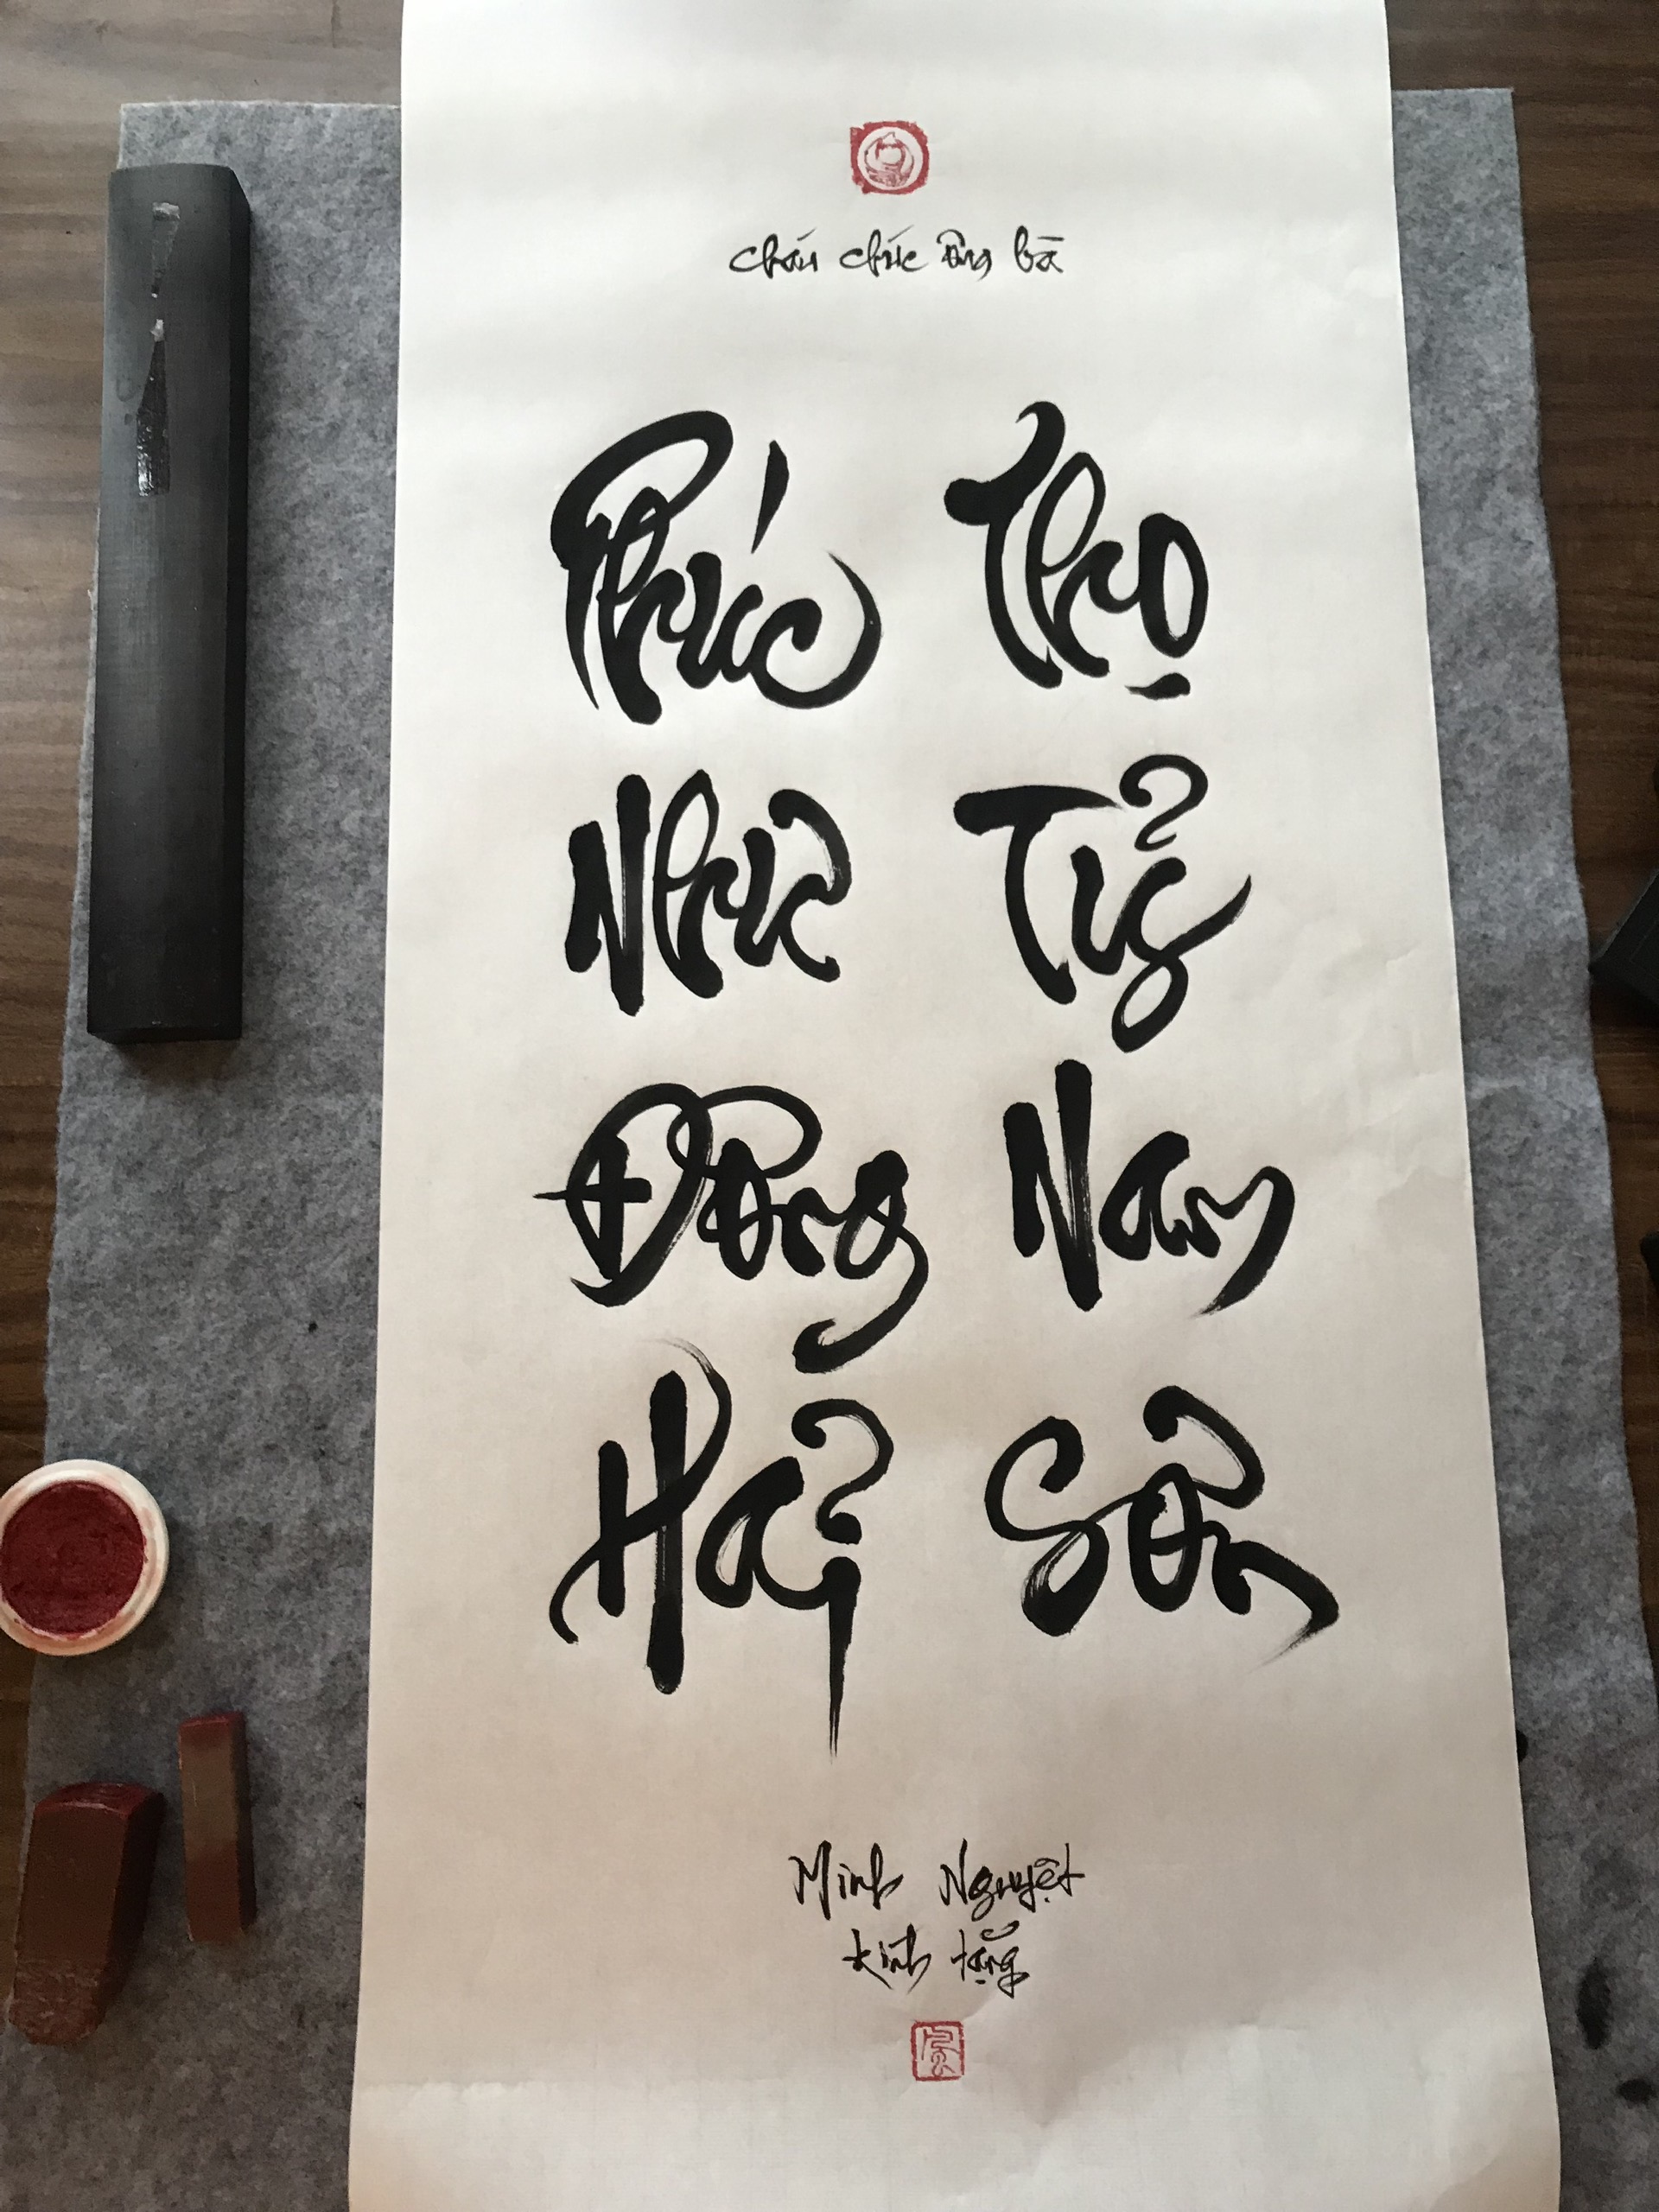 cháu chúc ông bà
Phúc Thọ
Như Tỷ
Đông Nam
Hải Sơn
Minh Nguyệt
kính tặng